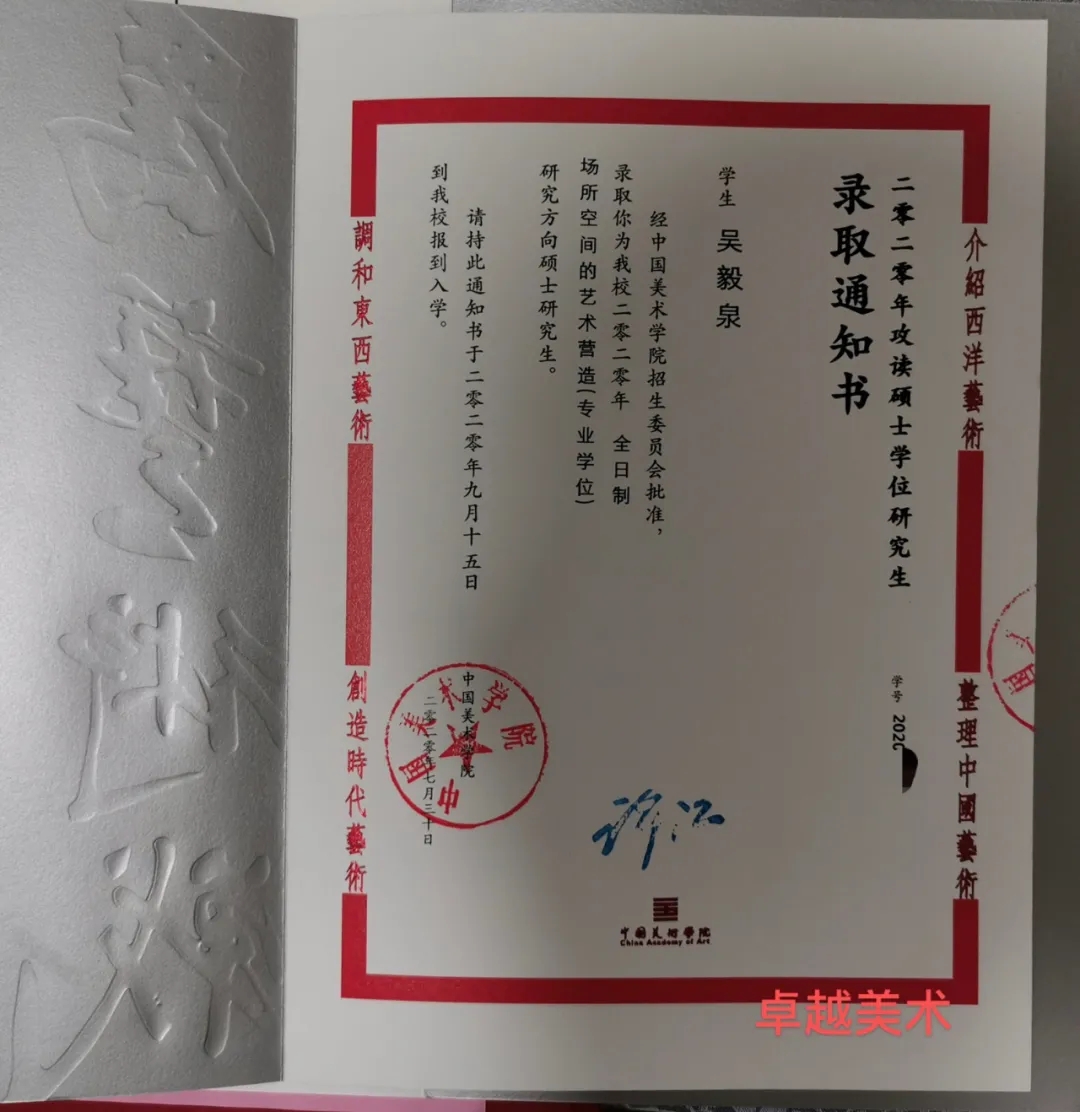 二零二零年攻读硕士学位研究生
录取通知书
学号 202
学生 吴毅泉
经中国美术学院招生委员会批准，
录取你为我校二零二零年 全日制
场所空间的艺术营造(专业学位)
研究方向硕士研究生。
请持此通知书于二零二零年九月十五日
到我校报到入学。
中国美术学院
二零二零年七月三十日
中国美术学院
介紹西洋藝術
整理中國藝術
調和東西藝術
創造時代藝術
许江
中国美術学院
China Academy of Art
卓越美术